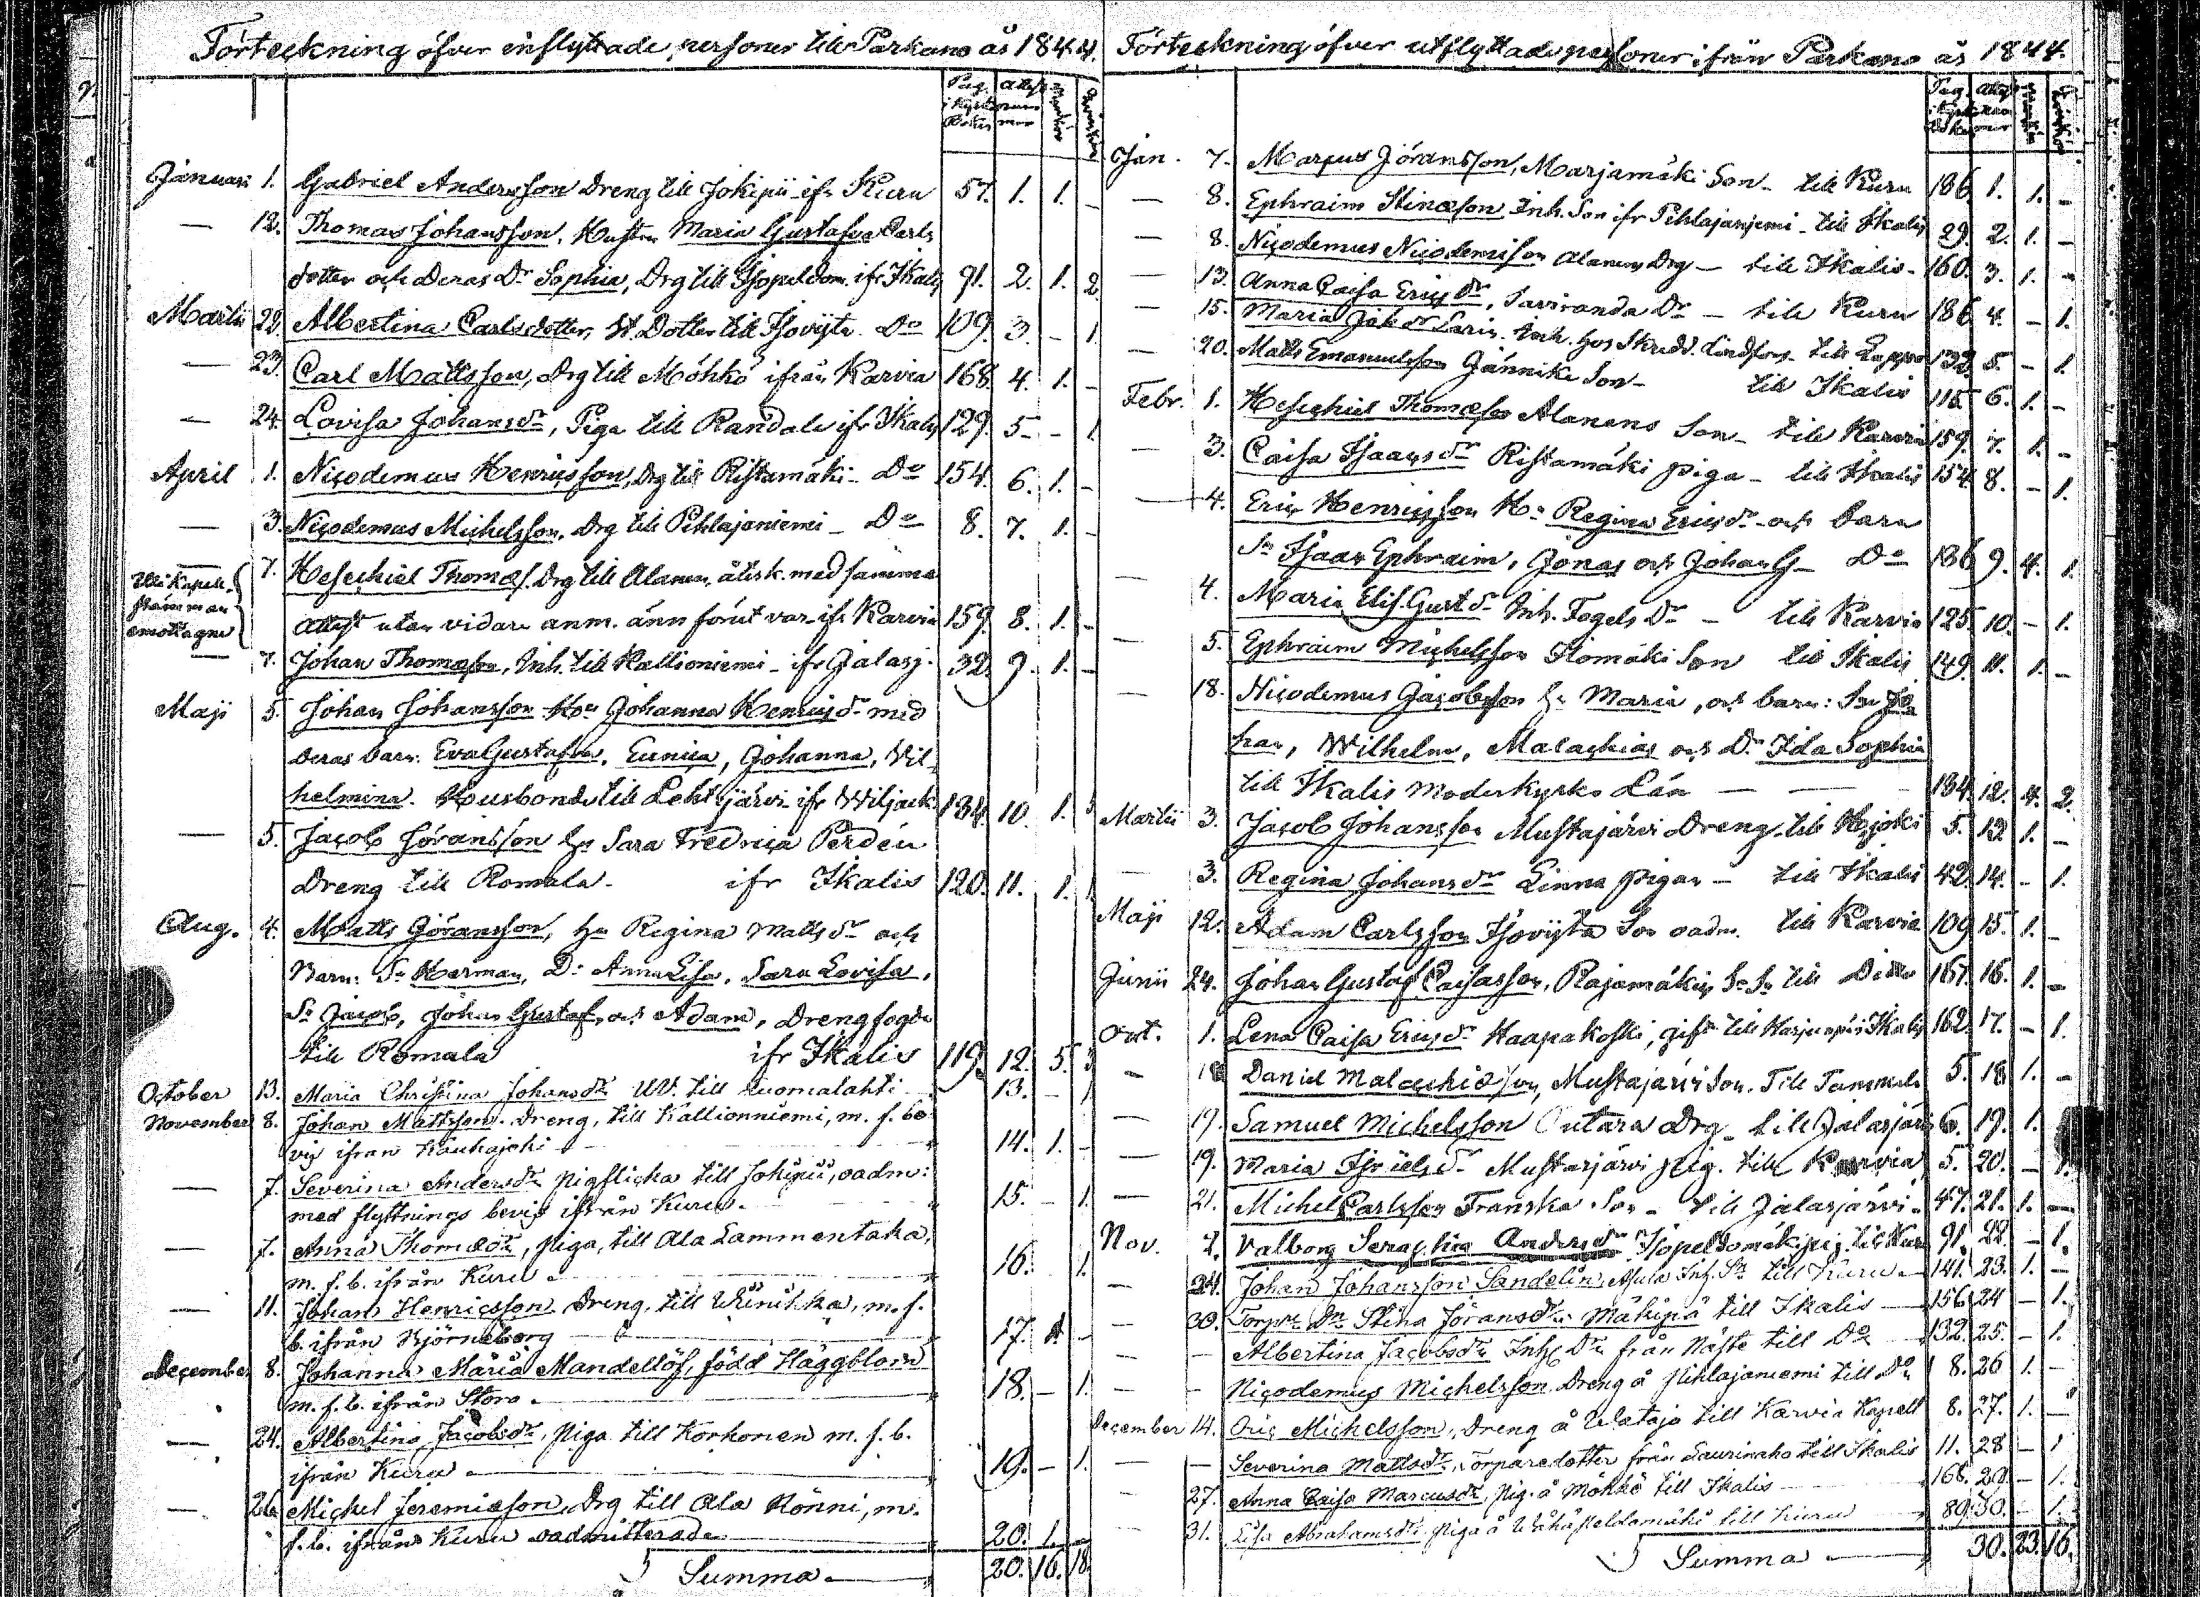 Förteckning öfver inflyttade personer till Parkano år 1844.
Pag. i Kyrk Boken Attest nummer Mankön Qvinkön
Januari 1. Gabriel Andersson Dreng till Jokipii ifr Kuru 57. 1. 1. -
— 12. Thomas Johansson, Hustru Maria Gustafva Carls
dotter och Deras Dr Sophia, Drg till Isopeldom. ifr Ikalis 91. 2. 1. 2
Martii 22. Albertina Carlsdotter, Dotter till Isovijta Do 109. 3. - 1.
— 23. Carl Mattsson, Drg till Möhkö ifrån Karvia 168. 4. 1. -
— 24. Lovisa Johansdr, Piga till Randala ifr Ikalis 129. 5. - 1.
April 1. Niçodemus Henriçsson, Drg till Ristamäki - Do 154. 6. 1. -
— 3. Niçodemus Michelsson, Drg till Pihlajaniemi - Do 8. 7. 1. -
— 7. Hesechiel Thomæs. Drg till Alanen, återk. med samma
attest utan vidare anm. änn förut var ifr Karvia 159. 8. 1. -
— 7. Johan Thomasson, Inh. till Kallioniemi - ifr Jalasj. 32. 9. 1. -
Maji 5. Johan Johansson Hu Johanna Henriçsdr med
deras barn: Eva Gustafva, Euniça, Johanna, Wil-
helmina. Husbonde till Lehtijärvi ifr Wiljack. 134. 10. 1. 5
— 5. Jaçob Jöransson hu Sara Fredriça Perdén
Dreng till Romala. ifr Ikalis 120. 11. 1. 1.
Aug. 4. Matts Göransson, hu Regina Mattsdr och
Barn: Sr Herman, Dr Anna Lisa, Sara Lovisa,
Sr Jaçob, Johan Gustaf, och Adam, Drengfogde
till Romala ifr Ikalis 119. 12. 5. 3
October 13. Maria Christina Johansdr till Luomalahti 13. - 1.
November 8. Johan Mattsson. Dreng, till Kallionniemi, m. f. be
vis ifrån Kauhajoki 14. 1. -
— 7. Severina Andersdr pigflicka till Jokipii, oadm:
med flyttnings bevis ifrån Kuru. 15. - 1.
— 7. Anna Thomædr, piga, till Ala Lammentaka,
m. f. b. ifrån Kuru 16. 1.
— 11. Johan Henricsson Dreng, till Wiinikka, m. f.
b. ifrån Björneborg 17. 1
December 8. Johanna Maria Mandellöf, född Häggblom
m. f. b. ifrån Storo 18. - 1.
— 24. Albertina Jaçobsdr, piga till Korhonen m. f. b.
ifrån Kuru 19. - 1.
— 26. Michel Jeremiæson, Drg till Ala Rönni, m.
f. b. ifrån Kuru oadmitterad 20. 1. -
Summa 20. 16. 18.
Förteckning öfver utflyttade personer ifrån Parkano år 1844.
Jan. 7. Marcus Jöransson, Marjamäki Son - till Kuru 186. 1. 1. -
— 8. Ephraim Stinæson Inh. Son ifr Pihlajaniemi - till Ikalis 29. 2. 1. -
— 8. Niçodemus Niçodemusson Alanen Drg - till Ikalis - 160. 3. 1. -
— 13. Anna Caisa Ericsdr, Saviranda Dr - till Kuru 186 4. - 1.
— 15. Maria Inh. hos Lindfors. till Lappo 132. 5. - 1.
— 20. Matts Emanuelsson Jännike Son - till Ikalis 115. 6. 1. -
Febr. 1. Hesechiel Thomæson Alanens Son - till Karvia 159. 7. 1. -
— 3. Caisa Isaacsdr Ristamäki piga - till Ikalis 154. 8. - 1.
— 4. Eriç Henriçsson Hu Regina Ericsdr och barn
Sr Isaac Ephraim, Jonas och Johan G - Do 186 9. 4. 1.
— 4. Maria Elis. Gust.dr Inh. Fogels Dr - till Karvia 125. 10. - 1.
— 5. Ephraim Michelsson Ilomäki Son till Ikalis 149. 11. 1. -
— 18. Niçodemus Jaçobsson hu Maria, och barn: Sr Jo
han, Wilhelm, Malachias och Dr Ida Sophia
till Ikalis Moderkyrko Län — — 134. 12. 4. 2.
Martii 3. Jaçob Johansson Mustajärvi Dreng till 5. 13 1. -
— 3. Regina Johansdr Linna pigan - till Ikalis 42. 14. - 1.
Maji 12. Adam Carlsson Isovijta Son oadm. till Karvia 109 15. 1. -
Junii 24. Johan Gustaf Caisasson, Rajamäki Sr Sr till Ditto 167. 16. 1. -
Oct. 1. Lena Caisa Ericsdr Haapakoski, gift till Ikalis 162. 17. - 1.
— 18 Daniel Malachiæson, Mustajärvi Son. Till Tammela 5. 18 1. -
— 19. Samuel Michelsson Outara Drg - till Jalasjärvi 6. 19. 1.
— 19. Maria Isräelsdr Mustajärvi pig. till Karvia 5. 20. - 1.
— 21. Michel Carlsson Franska Son - till Jalasjärvi - 47. 21. 1. -
Nov. 7. Valborg Seraphia Andersdr Isopeldomäki pig. till Kuru 91. 22. - 1.
— 24. Johan Johansson Sandelin, Inh. Sn till Kuru 141. 23. 1. -
— 30. Torpr Dr Stina Jöransdr Mäkipä till Ikalis 156 24 - 1.
— — Albertina Jaçobsdr Inh Dr från Näste till Do 132. 25. - 1.
— — Niçodemus Michelsson Dreng å Pihlajaniemi till Do 8. 26 1. -
December 14. Eriç Michelsson, Dreng å Wataja till Karvia Kapell 8. 27. 1. -
— — Severina Mattsdr, Torparedotter från Laurinaho till Ikalis 11. 28 - 1
— 27. Anna Caisa Marcusdr, pig. å Möhkö till Ikalis 168. 29. - 1.
— 31. Lisa Abrahamsdr. Piga å Wähäpeldomäki till Kuru 89. 30. - 1.
Summa 30. 23. 16.